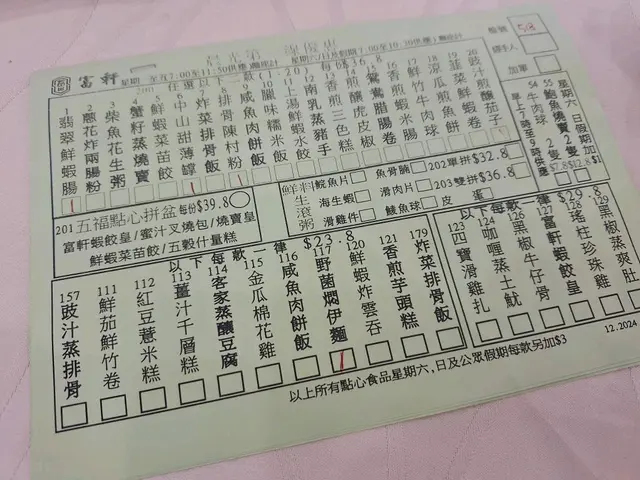 富軒
晨光第一課優惠
星期一至五7:00至11:50供應
星期六/日及假期7:00至10:30供應
任選以下二款(1-20)
檯號 58
經手人
加單
1 翡翠鮮蝦腸
2 蔥花炸兩腸粉
3 柴魚花生粥
4 蟹籽蒸燒賣
5 鮮蝦菜苗餃
6 中山甜薄罉
7 炸菜排骨飯
8 排骨陳村粉
9 咸魚肉餅飯
10 臘味糯米飯
11 上湯鮮蝦水餃
12 南乳蒸豬手
13 香煎三色糕
14 煎釀虎皮椒
15 鴛鴦腊腸卷
16 香煎蝦米腸
17 鮮竹牛肉球
18 涼瓜煎魚餅
19 韮菜鮮蝦餅
20 豉汁煎釀茄子
星期六 日假期加
早上7時至9時供應
54 牛肉球 2隻
55 鮑魚燒賣 2隻
$7.8 $12.8
201 五福點心拼盆 每份$39.8
富軒蝦餃皇/蜜汁叉燒包/燒賣皇
鮮蝦菜苗餃/五穀什量糕
鮮料生滾粥
鯇魚片 魚骨腩 202單拼$32.8
海生蝦 滑肉片 203雙拼$36.8
滑雞件 鯪魚球 皮蛋
以下每款一律$23.8
157 豉汁蒸排骨
111 鮮茄鮮竹卷
112 紅豆薏米糕
113 薑汁千層糕
114 客家蒸釀豆腐
115 金瓜棉花雞
116 咸魚肉餅飯
117 野菌燜伊麵
120 鮮蝦炸雲吞
121 香煎芋頭糕
179 炸菜排骨飯
以下每款一律$29.8
123 四寶滑雞扎
124 咖喱蒸土魷
126 黑椒牛仔骨
127 富軒蝦餃皇
128 瑤柱珍珠雞
129 黑椒蒸爽肚
以上所有點心食品星期六,日及公眾假期每款另加$3
12.2024